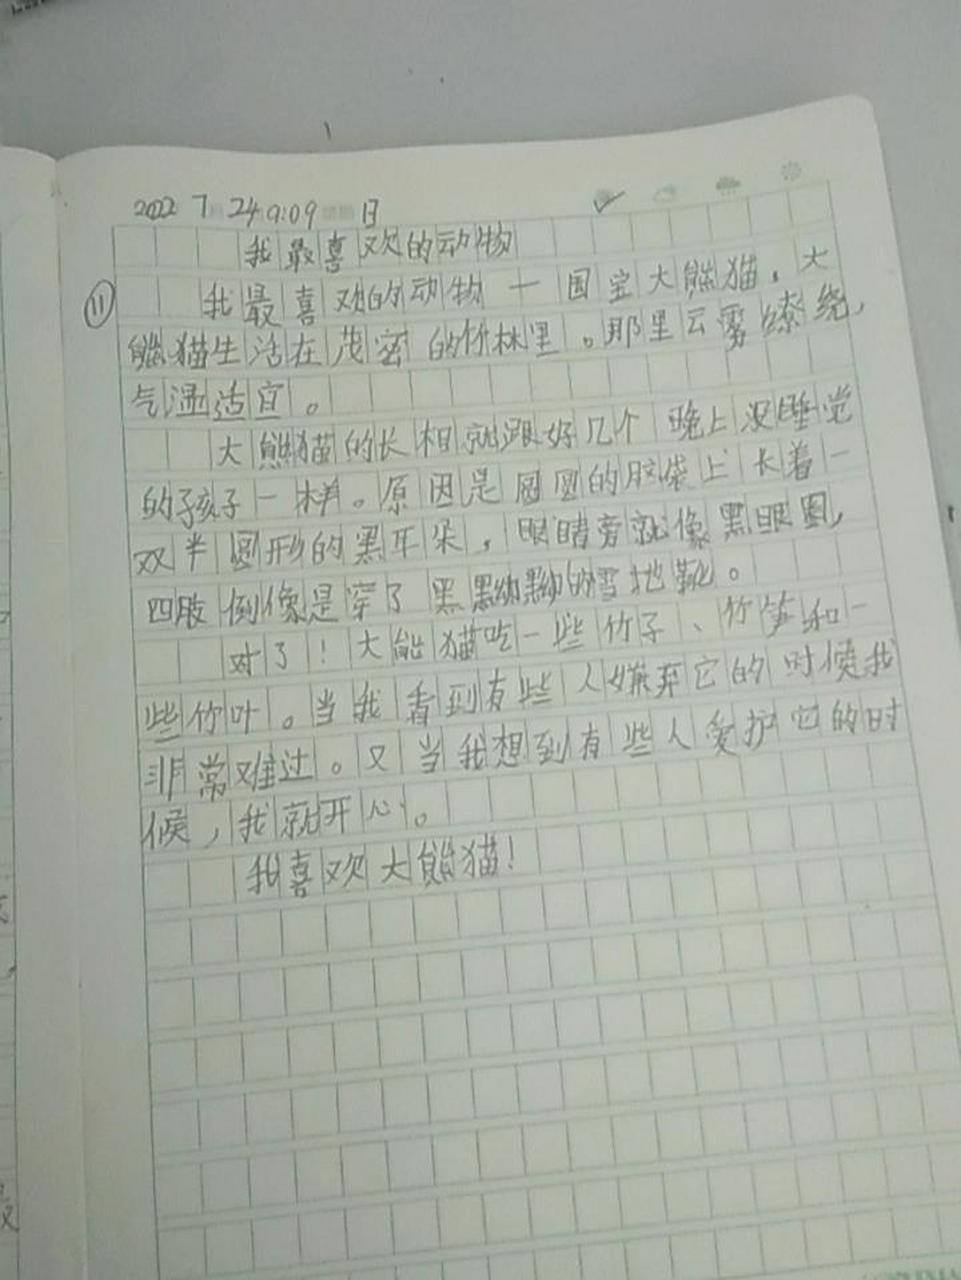 2022 7 24 9:09 日
我最喜欢的动物
⑪ 我最喜欢的动物一国宝大熊猫。大
熊猫生活在茂密的竹林里。那里云雾缭绕，
气温适宜。
大熊猫的长相就跟好几个晚上没睡觉
的孩子一样。原因是圆圆的脑袋上长着一
双半圆形的黑耳朵，眼睛旁就像黑眼圈，
四肢倒像是穿了黑黝黝的雪地靴。
对了！大熊猫吃一些竹子、竹笋和一
些竹叶。当我看到有些人嫌弃它的时候我
非常难过。又当我想到有些人爱护它的时
候，我就开心。
我喜欢大熊猫！